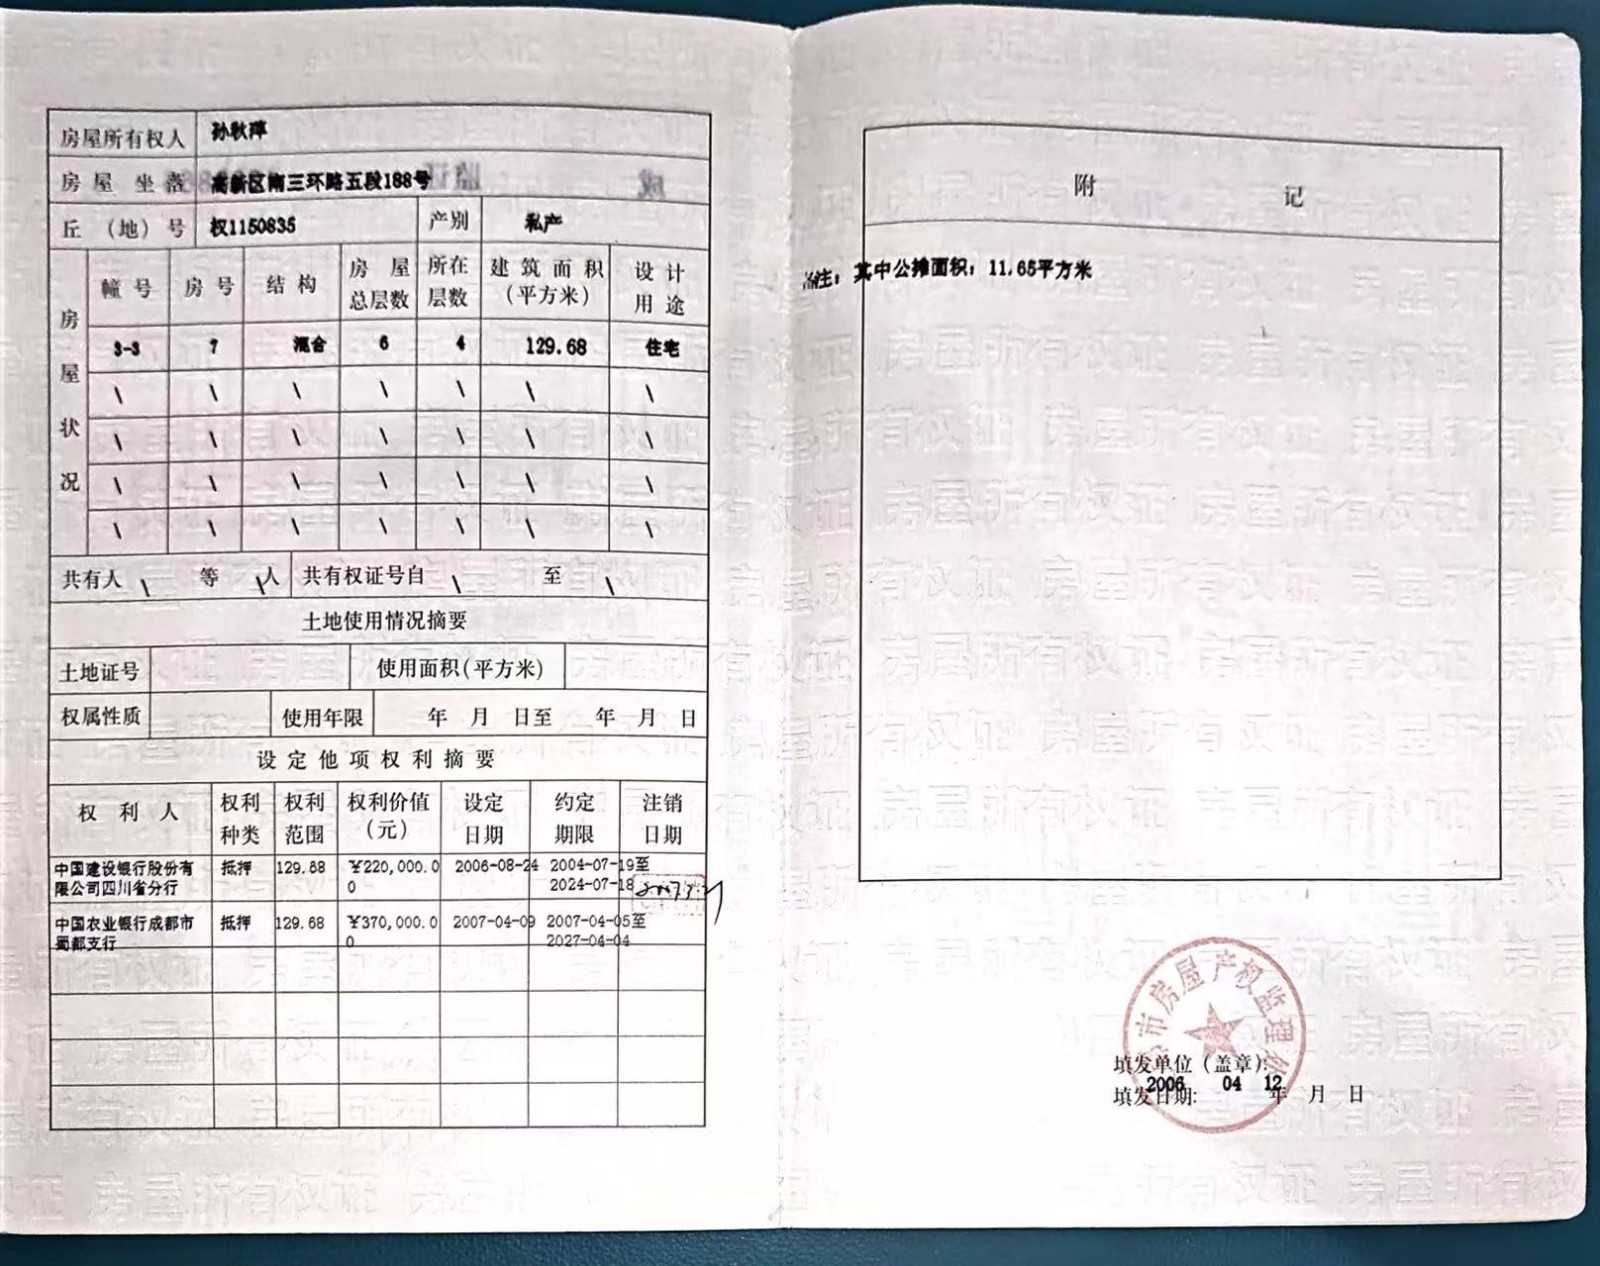 房屋所有权人 孙秋萍
房屋坐落 高新区南三环路五段188号
丘（地）号 权1150835 产别 私产
房屋状况
幢号 房号 结构 房屋总层数 所在层数 建筑面积（平方米） 设计用途
3-3 7 混合 6 4 129.68 住宅
\ \ \ \ \ \ \
\ \ \ \ \ \ \
\ \ \ \ \ \ \
\ \ \ \ \ \ \
共有人 \ 等 \ 人 共有权证号自 \ 至 \
土地使用情况摘要
土地证号 使用面积(平方米)
权属性质 使用年限 年 月 日至 年 月 日
设定他项权利摘要
权利人 权利种类 权利范围 权利价值（元） 设定日期 约定期限 注销日期
中国建设银行股份有 抵押 129.68 ￥220,000.0 2006-08-24 2004-07-19至
限公司四川省分行 0 2024-07-18
中国农业银行成都市 抵押 129.68 ￥370,000.0 2007-04-09 2007-04-05至
蜀都支行 0 2027-04-04
附 记
备注：其中公摊面积：11.65平方米
市房屋产权监理
填发单位（盖章）:
2006 04 12
填发日期: 年 月 日